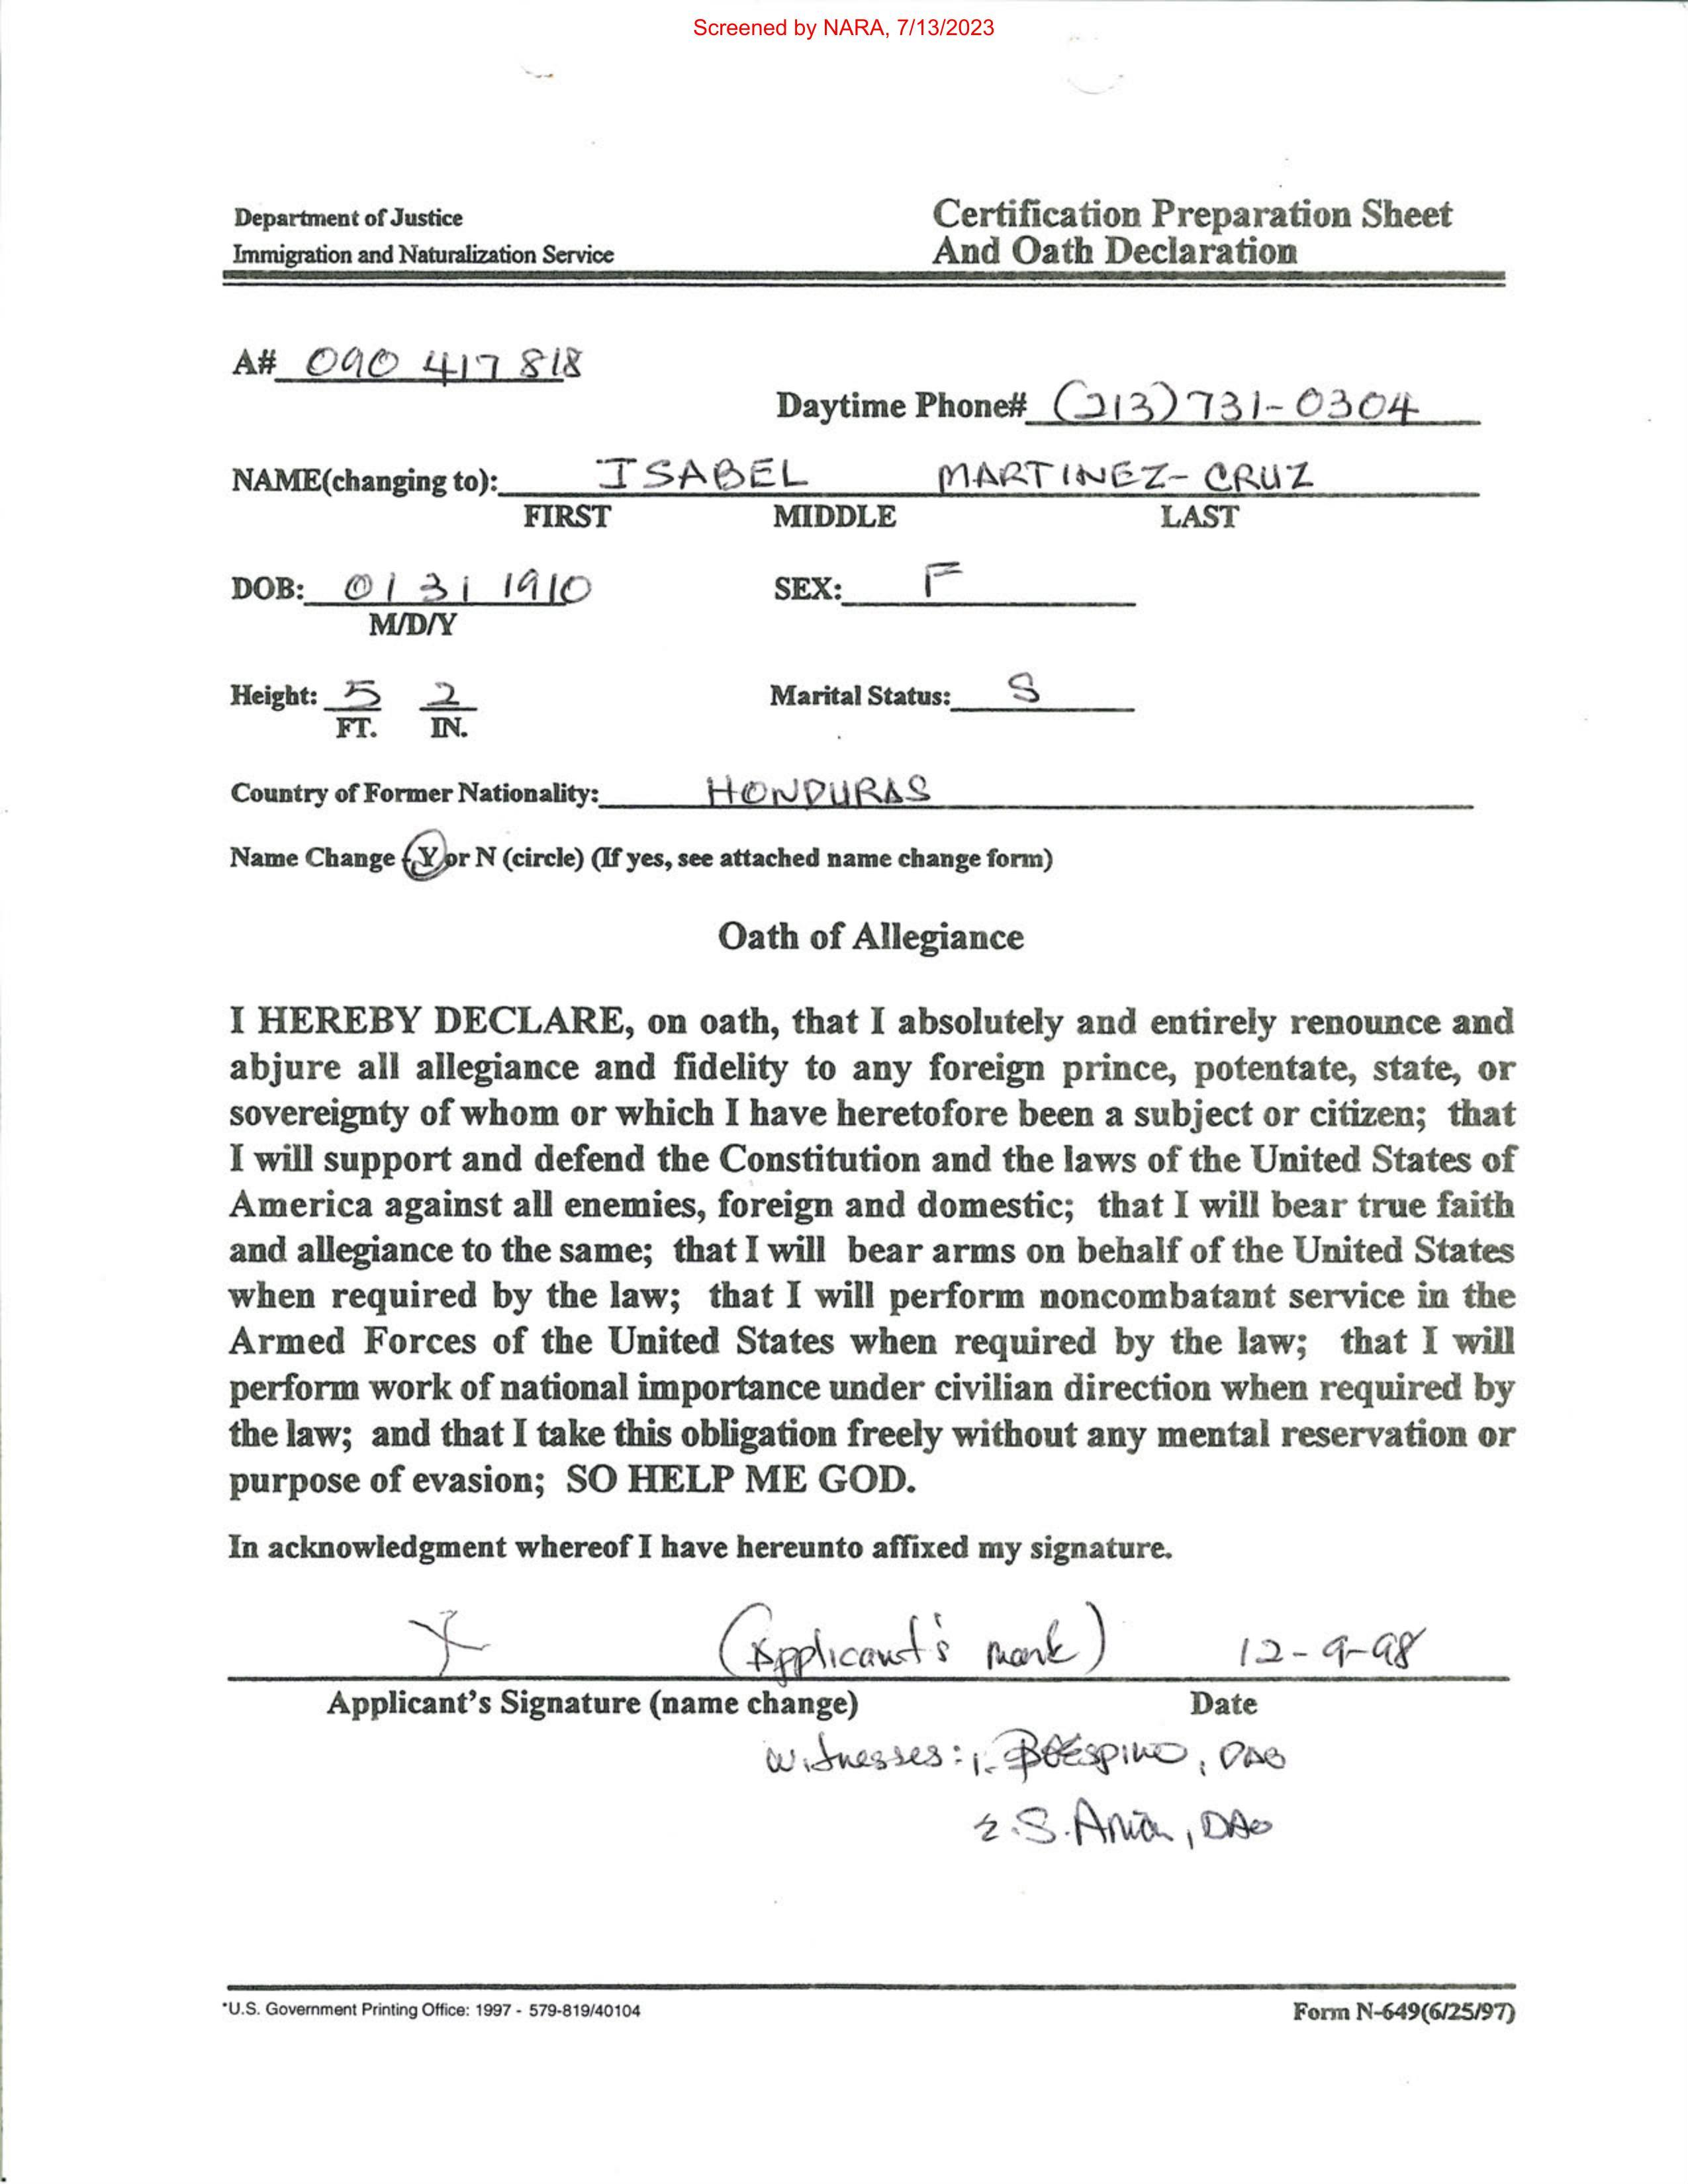 Screened by NARA, 7/13/2023
Department of Justice
Immigration and Naturalization Service
Certification Preparation Sheet
And Oath Declaration
A# 090 417 818
Daytime Phone# (213) 731-0304
NAME(changing to): ISABEL MARTINEZ-CRUZ
FIRST MIDDLE LAST
DOB: 01 31 1910 SEX: F
M/D/Y
Height: 5 2 Marital Status: S
FT. IN.
Country of Former Nationality: HONDURAS
Name Change (Y or N (circle) (If yes, see attached name change form)
Oath of Allegiance
I HEREBY DECLARE, on oath, that I absolutely and entirely renounce and
abjure all allegiance and fidelity to any foreign prince, potentate, state, or
sovereignty of whom or which I have heretofore been a subject or citizen; that
I will support and defend the Constitution and the laws of the United States of
America against all enemies, foreign and domestic; that I will bear true faith
and allegiance to the same; that I will bear arms on behalf of the United States
when required by the law; that I will perform noncombatant service in the
Armed Forces of the United States when required by the law; that I will
perform work of national importance under civilian direction when required by
the law; and that I take this obligation freely without any mental reservation or
purpose of evasion; SO HELP ME GOD.
In acknowledgment whereof I have hereunto affixed my signature.
X (Applicant's mark) 12-9-98
Applicant's Signature (name change) Date
Witnesses: 1.
2. S. , DAO
*U.S. Government Printing Office: 1997 - 579-819/40104
Form N-649(6/25/97)